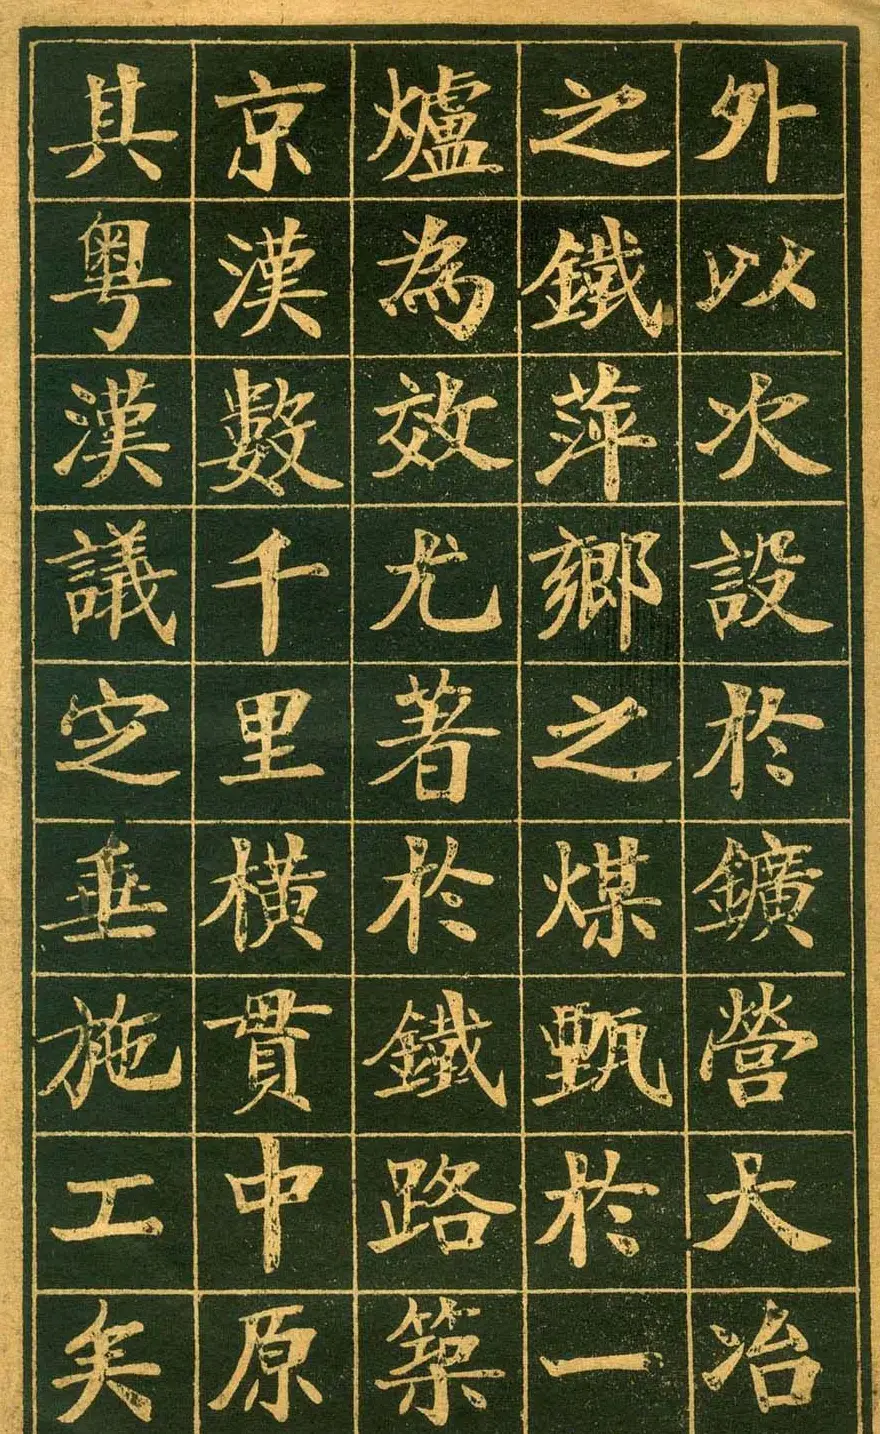 外以次設於鑛營大冶
之鐵萍鄉之煤甄於一
爐為效尤著於鐵路築
京漢數千里橫貫中原
其粵漢議定垂施工矣